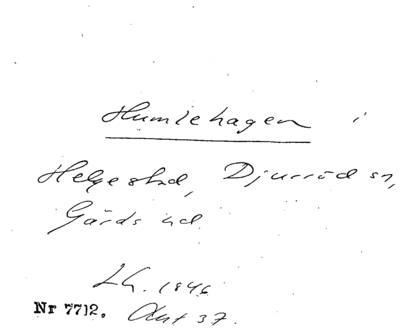 Humlehagen i
Helgestad, Djurröd sn,
Gärds hd.
Lh. 1846
Nr 7712. Akt 37.